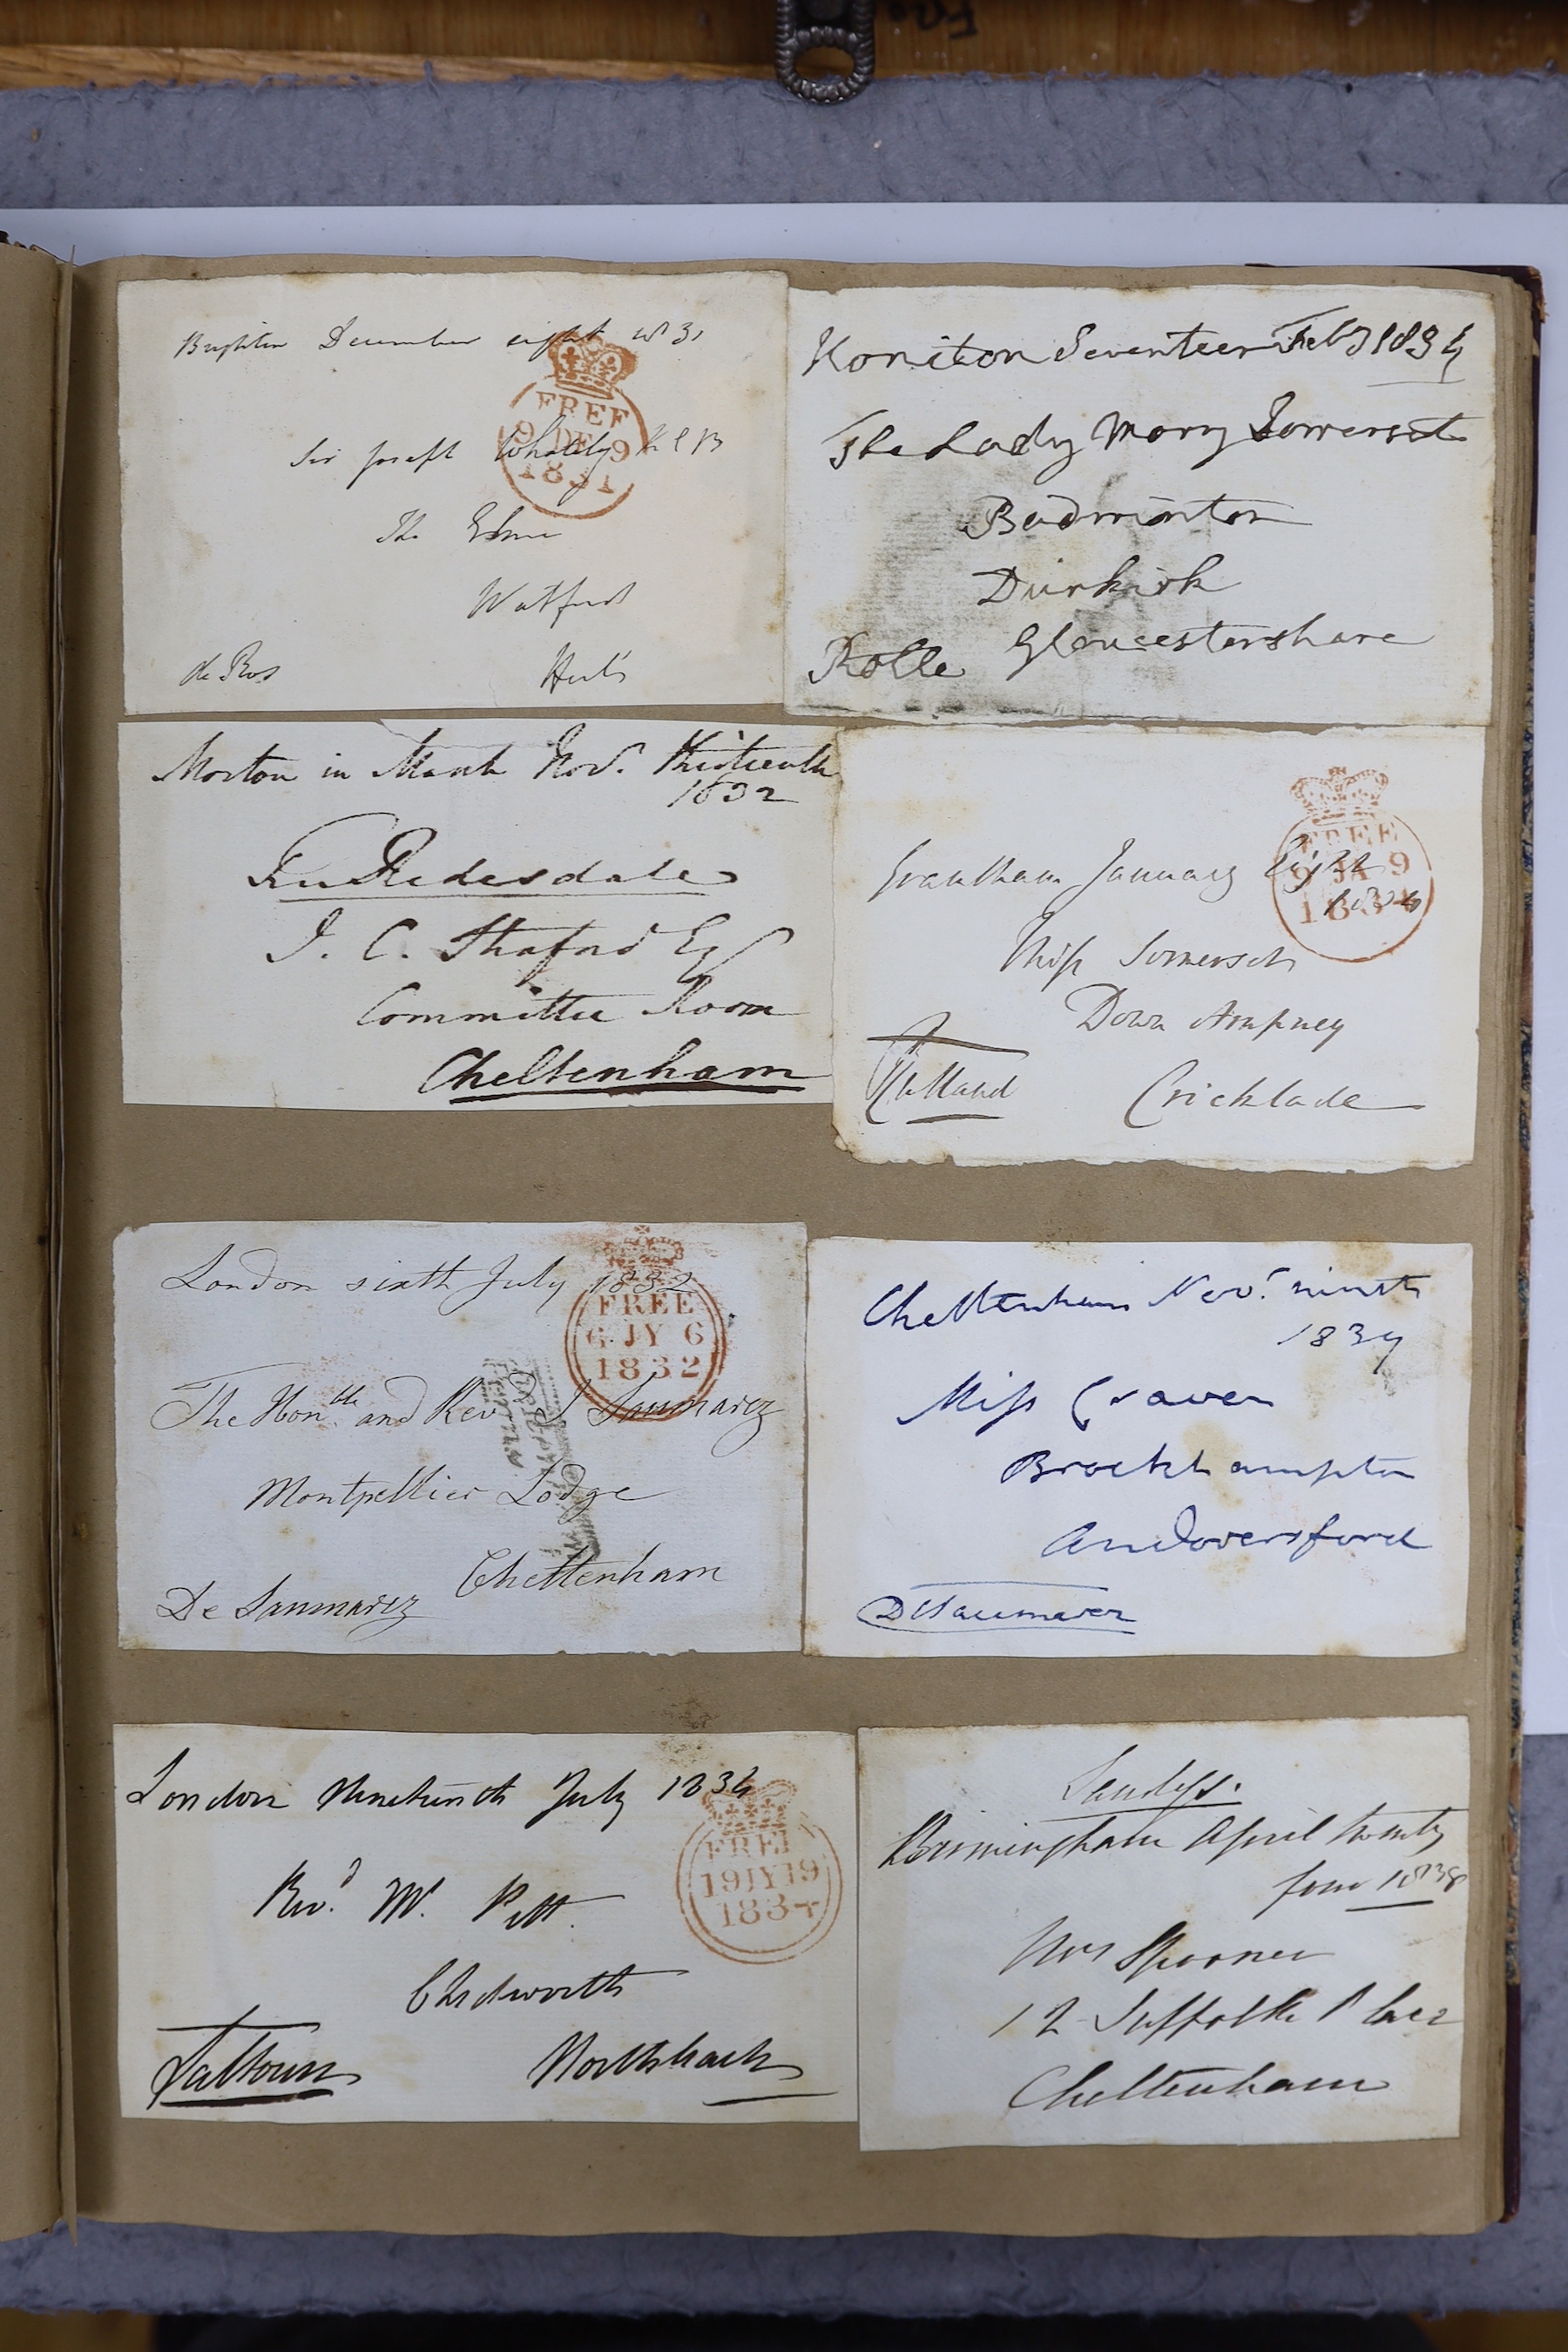 Brighton December eight 1831
FREE
9 DE 9
1831
Sir Joseph Whately K C B
The Elms
Watford
de Ros
Herts
Honiton Seventeen Feb 1834
The Lady Mary Somerset
Badminton
Dunkirk
Gloucestershare
Rolle
Morton in Marsh Nov. Thirteenth
1832
Redesdale
J. C. Straford Esq
Committee Room
Cheltenham
Grantham January Eight
1834
FREE
9 JA 9
1834
Miss Somerset
Down Ampney
Rutland
Cricklade
London sixth July 1832
FREE
6 JY 6
1832
The Honble and Revd J Saumarez
Montpellier Lodge
Cheltenham
De Saumarez
Cheltenham Novr ninth
1839
Miss Craven
Brockhampton
Andoversford
De Saumarez
London Nineteenth July 1834
FREE
19 JY 19
1834
Revd Mr Pitt
Chedworth
Saltoun
Northleach
Sandys.
Birmingham April twenty
four 1838
Mrs Spooner
12 Suffolk Place
Cheltenham